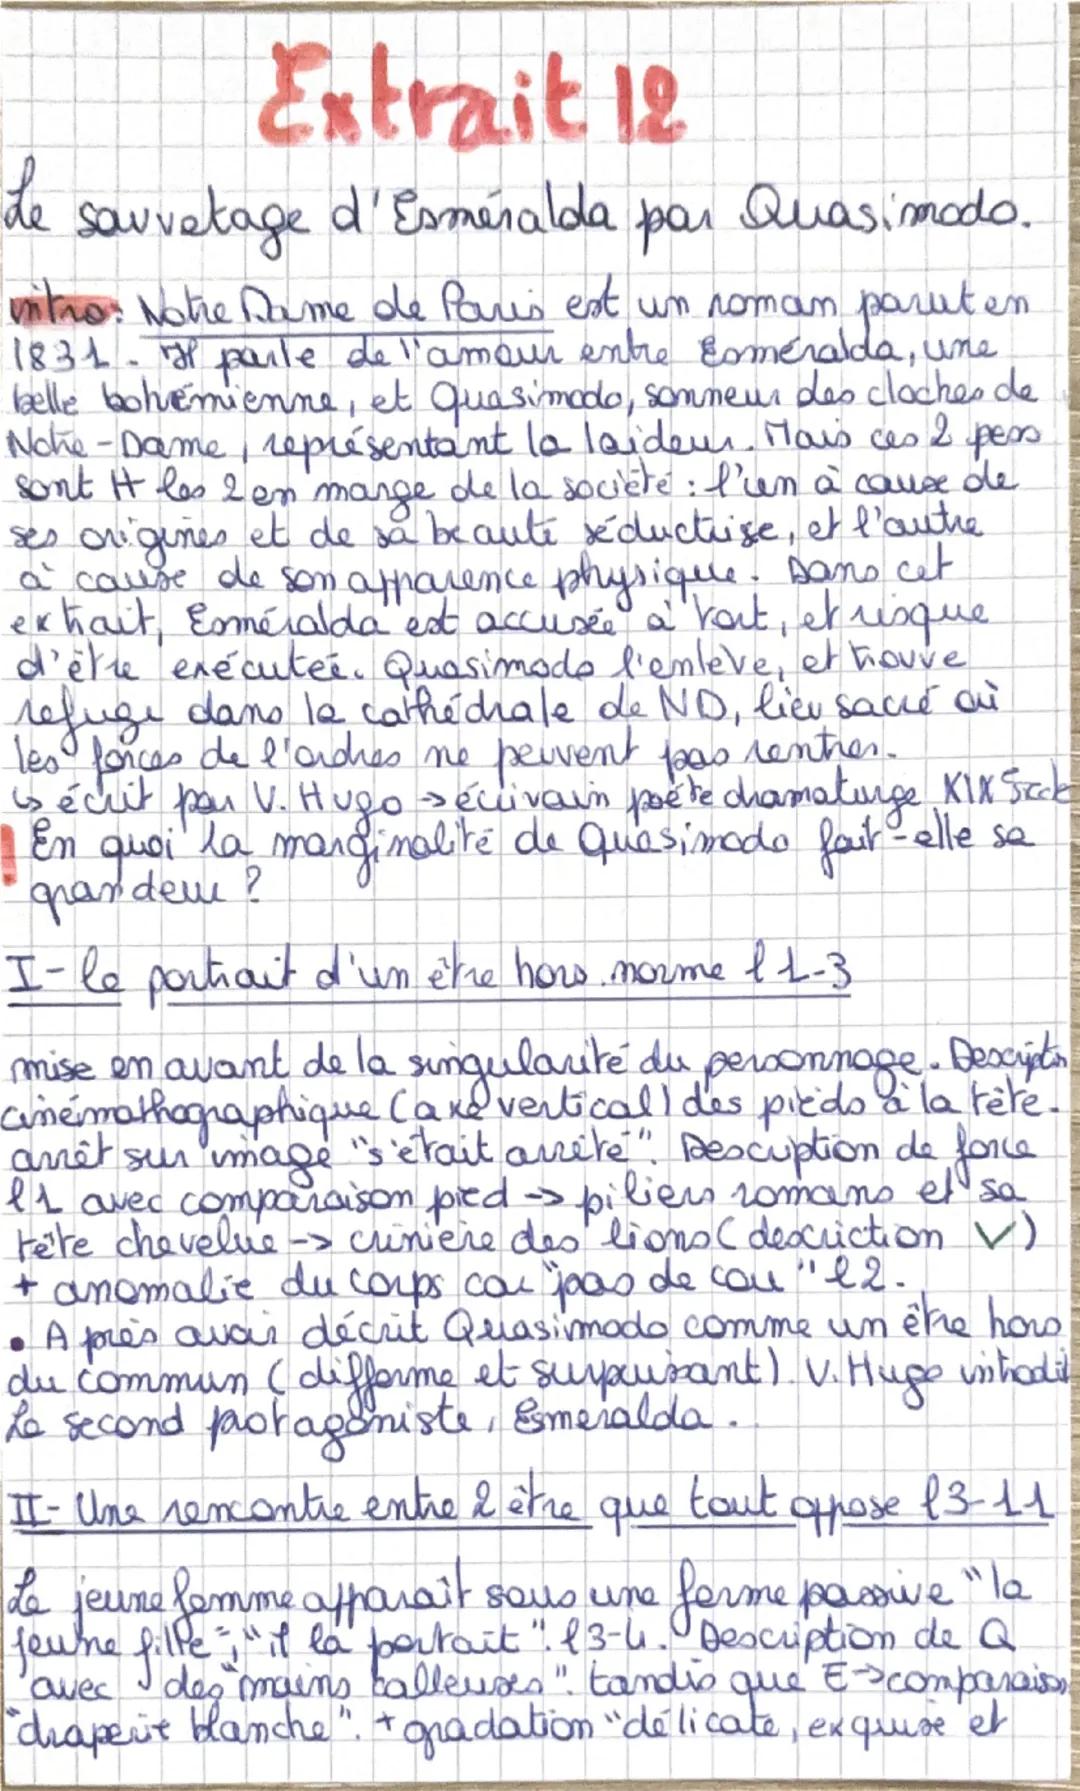 Extrait 12
Le sauvetage d'Esméralda par Quasimodo.
intro: Notre Dame de Paris est un roman parut en
1831. Il parle de l'amour entre Esméralda, une
belle bohémienne, et Quasimodo, sonneur des cloches de
Notre-Dame, représentant la laideur. Mais ces 2 pers
sont tt les 2 en marge de la société : l'un à cause de
ses origines et de sa beauté séductrise, et l'autre
à cause de son apparence physique. Dans cet
extrait, Esméralda est accusée à tort, et risque
d'être exécutée. Quasimodo l'enlève, et trouve
refuge dans la cathédrale de ND, lieu sacré où
les forces de l'ordres ne peuvent pas rentrer.
↳ écrit par V. Hugo → écrivain poète dramaturge XIX
! En quoi la marginalité de Quasimodo fait-elle sa
grandeur ?
I- le portrait d'un être hors norme l 1-3
mise en avant de la singularité du personnage. Descriptn
cinémathographique (axe vertical) des pieds à la tête.
arrêt sur image "s'était arrêté". Description de force
l1 avec comparaison pied → piliers romans et sa
tête chevelue → crinière des lions (descriction ✓)
+ anomalie du corps car "pas de cou" l2.
• Après avoir décrit Quasimodo comme un être hors
du commun (difforme et surpuissant). V. Hugo introdit
le second protagoniste, Esmeralda.
II- Une rencontre entre 2 être que tout oppose l3-11
La jeune femme apparaît sous une forme passive "la
jeune fille", "il la portait". l3-4. Description de Q
avec des "mains calleuses". tandis que E → comparaison
"draperie blanche". + gradation "délicate, exquise et